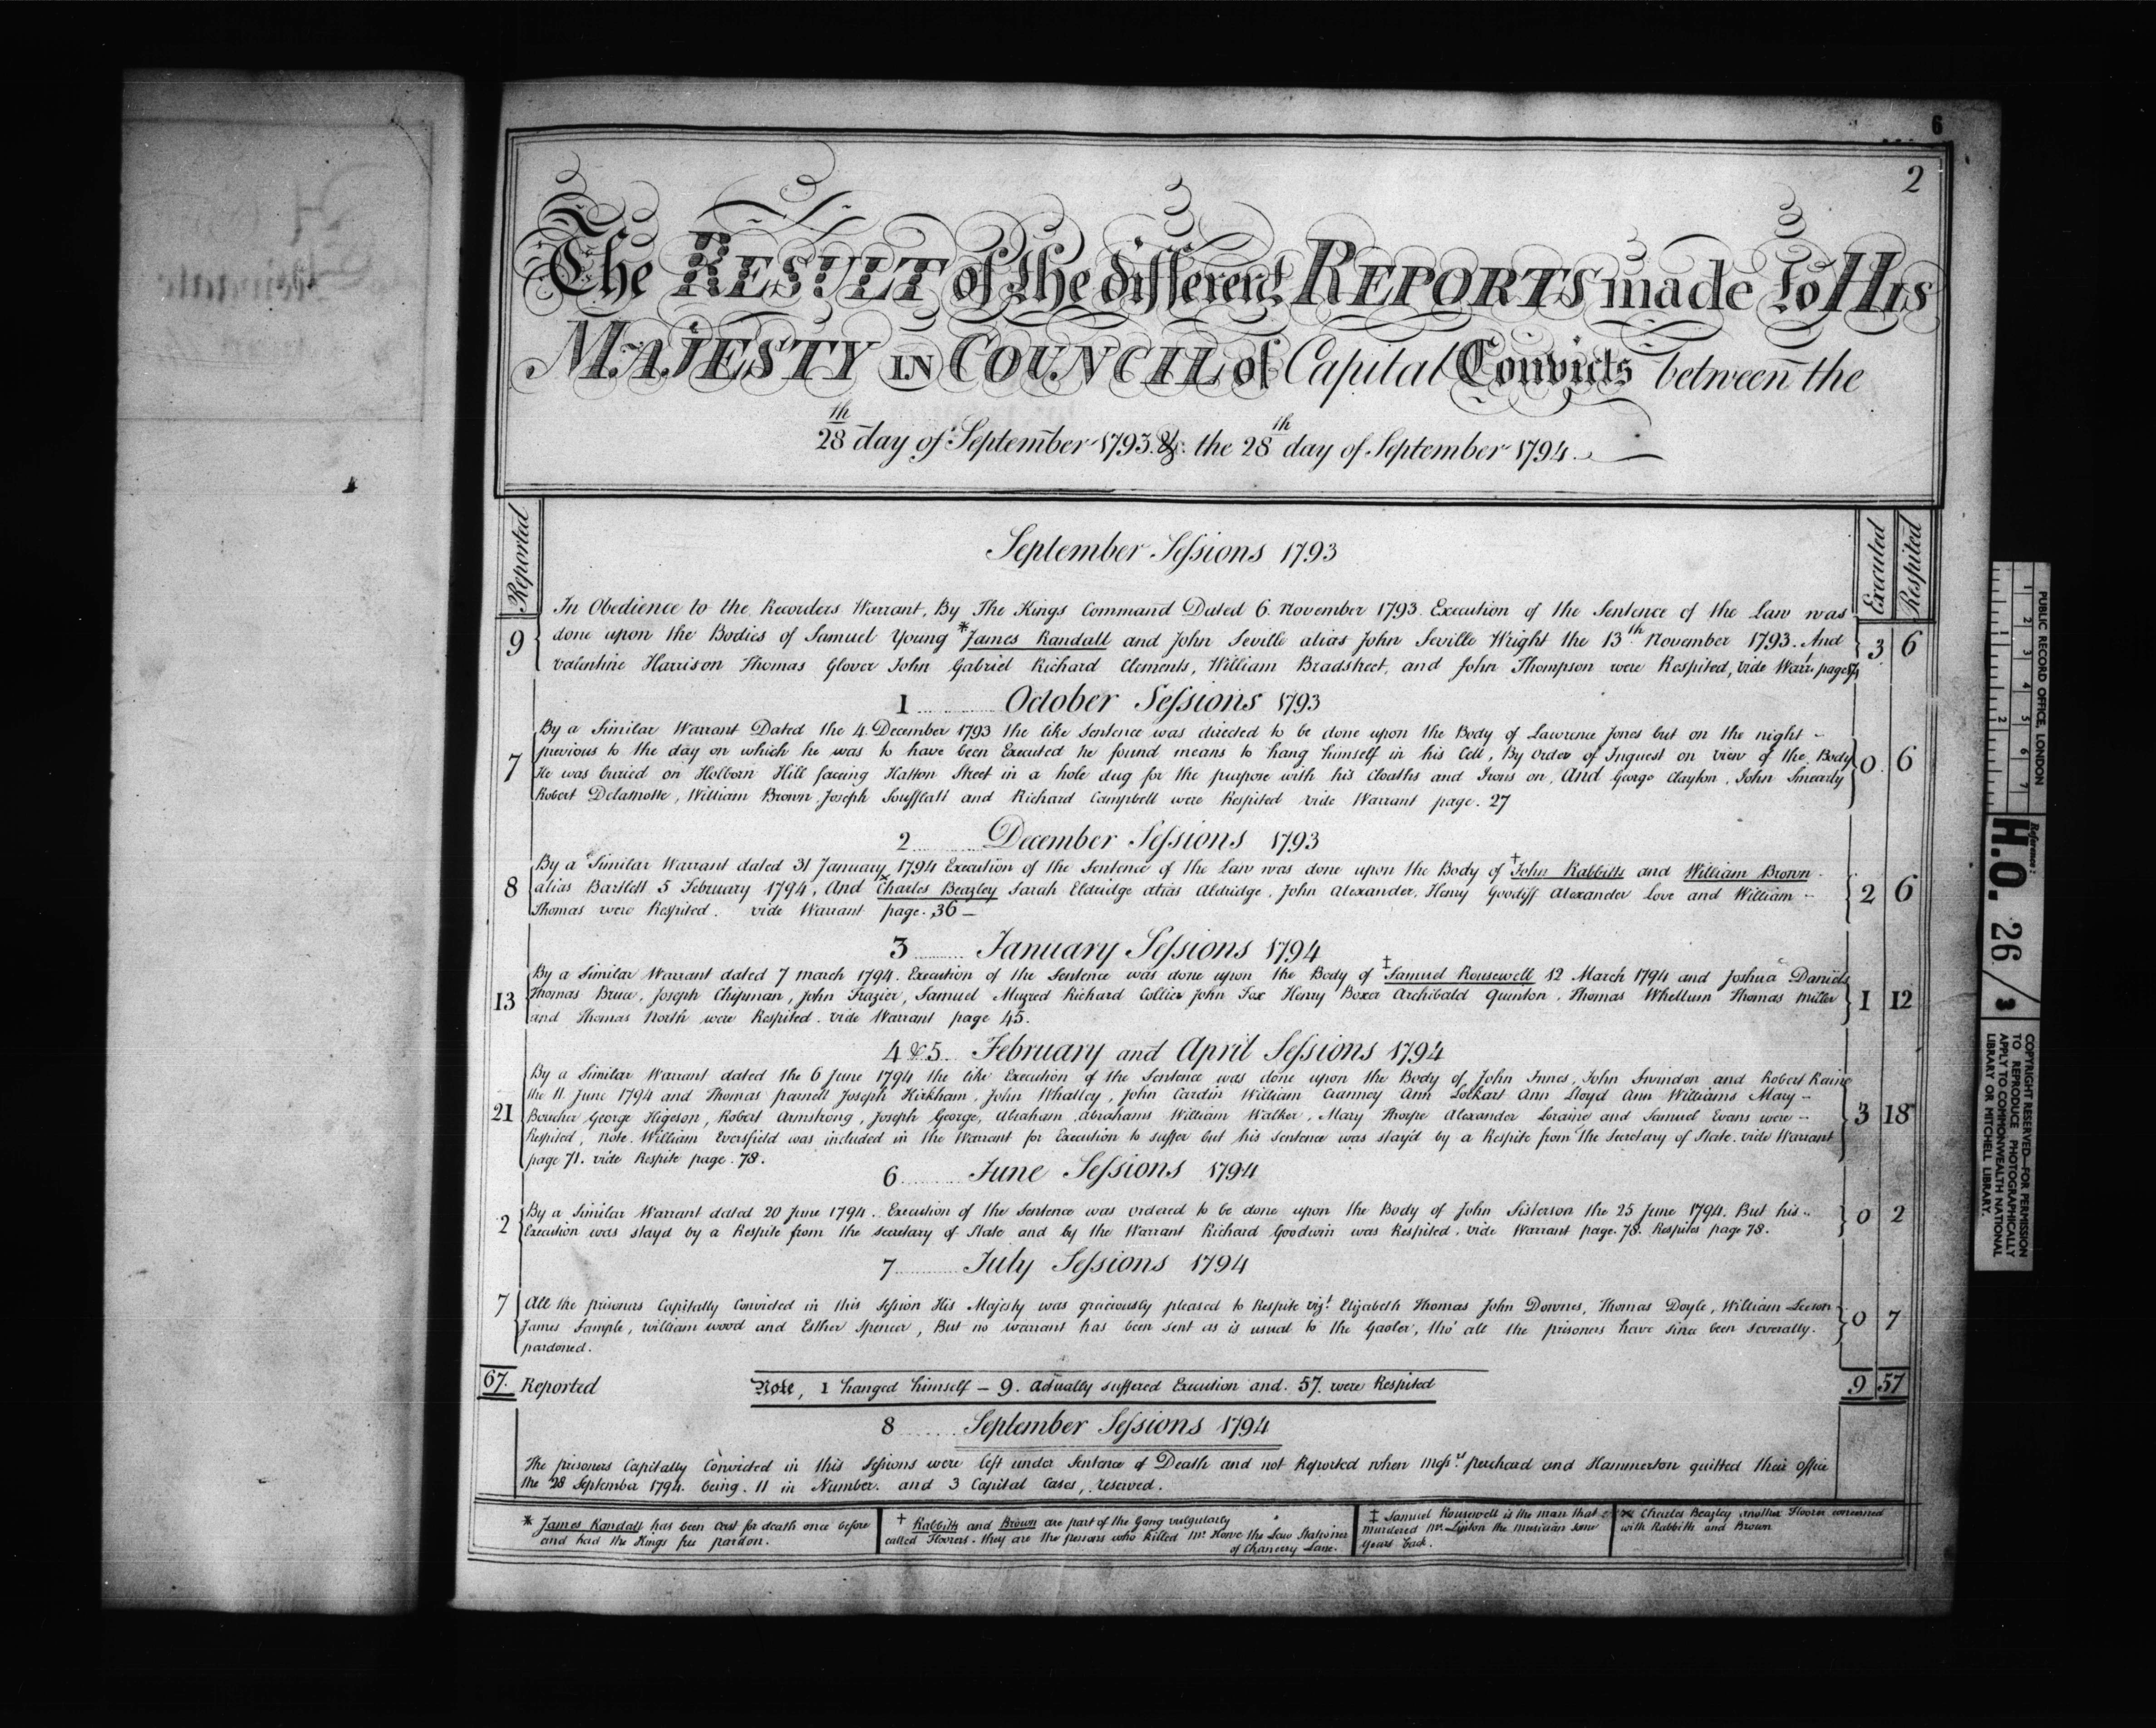 6
2
The RESULT of the different REPORTS made to HIS
MAJESTY IN COUNCIL of Capital Convicts between the
28th day of September 1793. & the 28th day of September 1794.
Reported
Executed
Respited
September Sessions 1793
In Obedience to the Recorders Warrant, By The Kings Command Dated 6 November 1793 Execution of the Sentence of the Law was
9 done upon the Bodies of Samuel Young *James Randall and John Seville alias John Seville Wright the 13th November 1793. And 3 6
Valentine Harrison Thomas Glover John Gabriel Richard Clements, William Bradstreet, and John Thompson were Respited, vide Warrt. page
1 October Sessions 1793
By a Similar Warrant Dated the 4 December 1793 the like Sentence was directed to be done upon the Body of Lawrence Jones but on the night
previous to the day on which he was to have been Executed he found means to hang himself in his Cell, By Order of Inquest on view of the Body
7 He was buried on Holborn Hill facing Hatton Street in a hole dug for the purpose with his Cloaths and Irons on, And George Clayton, John Smeardy 0 6
Robert Delamotte, William Brown Joseph Soufflatt and Richard Campbell were Respited vide Warrant page. 27
2 December Sessions 1793
By a Similar Warrant dated 31 January 1794 Execution of the Sentence of the Law was done upon the Body of †John Rabbitts and William Brown
8 alias Bartlett 5 February 1794, And Charles Beazley Sarah Eldridge alias Aldridge, John Alexander, Henry Goodiff Alexander Love and William 2 6
Thomas were Respited. vide Warrant page. 36
3 January Sessions 1794
By a Similar Warrant dated 7 March 1794. Execution of the Sentence was done upon the Body of ‡Samuel Rousewell 12 March 1794 and Joshua Daniels
13 Thomas Bruce, Joseph Chipman, John Frazier, Samuel Richard Collier John Fox Henry Boxer Archibald Quinton, Thomas Whellum Thomas Miller 1 12
and Thomas North were Respited. vide Warrant page 45.
4 & 5 February and April Sessions 1794
By a Similar Warrant dated the 6 June 1794 the like Execution of the Sentence was done upon the Body of John Innes, John Swindon and Robert Keine
the 11 June 1794 and Thomas Parnell Joseph Kirkham, John Whalley, John Cardin William Cranney Ann Lockart Ann Lloyd Ann Williams Mary
21 Boucher George Higeson, Robert Armstrong, Joseph George, Abraham Abrahams William Walker, Mary Thorpe Alexander Loraine and Samuel Evans were 3 18
Respited, Note. William Eversfield was included in the Warrant for Execution to suffer but his Sentence was stayd by a Respite from the Secretary of State. vide Warrant
page 71. vide Respite page. 78.
6 June Sessions 1794
By a Similar Warrant dated 20 June 1794. Execution of the Sentence was ordered to be done upon the Body of John Sisterson the 25 June 1794. But his
2 Execution was stayd by a Respite from the Secretary of State and by the Warrant Richard Goodwin was Respited. vide Warrant page. 78. Respites page 78. 0 2
7 July Sessions 1794
7 All the prisoners Capitally Convicted in this Session His Majesty was graciously pleased to Respite vizt. Elizabeth Thomas John Downes, Thomas Doyle, William Leeson 0 7
James Sample, William Wood and Esther Spencer, But no warrant has been sent as is usual to the Gaoler, tho' all the prisoners have since been severally
pardoned.
67. Reported Note, 1 hanged himself – 9. actually suffered Execution and. 57. were Respited 9 57
8 September Sessions 1794
The prisoners Capitally Convicted in this Sessions were left under Sentence of Death and not Reported when Messrs. Perchard and Hammerton quitted their office
the 28 September 1794. being. 11 in Number. and 3 Capital Cases, reserved.
* James Randall has been Cast for death once before
and had the Kings free pardon.
† Rabbitts and Brown are part of the Gang vulgarly
called Floorers. they are the persons who killed Mr. Howe the Law Stationer
of Chancery Lane.
‡ Samuel Rousewell is the man that
murdered Mr. Linton the musician some
years back.
Charles Beazley another Floorer concerned
with Rabbitts and Brown
PUBLIC RECORD OFFICE, LONDON
1 2 3 4 5 6 7
1 2
Reference:-
H.O. 26 / 3
COPYRIGHT RESERVED—FOR PERMISSION
TO REPRODUCE PHOTOGRAPHICALLY
APPLY TO COMMONWEALTH NATIONAL
LIBRARY OR MITCHELL LIBRARY.